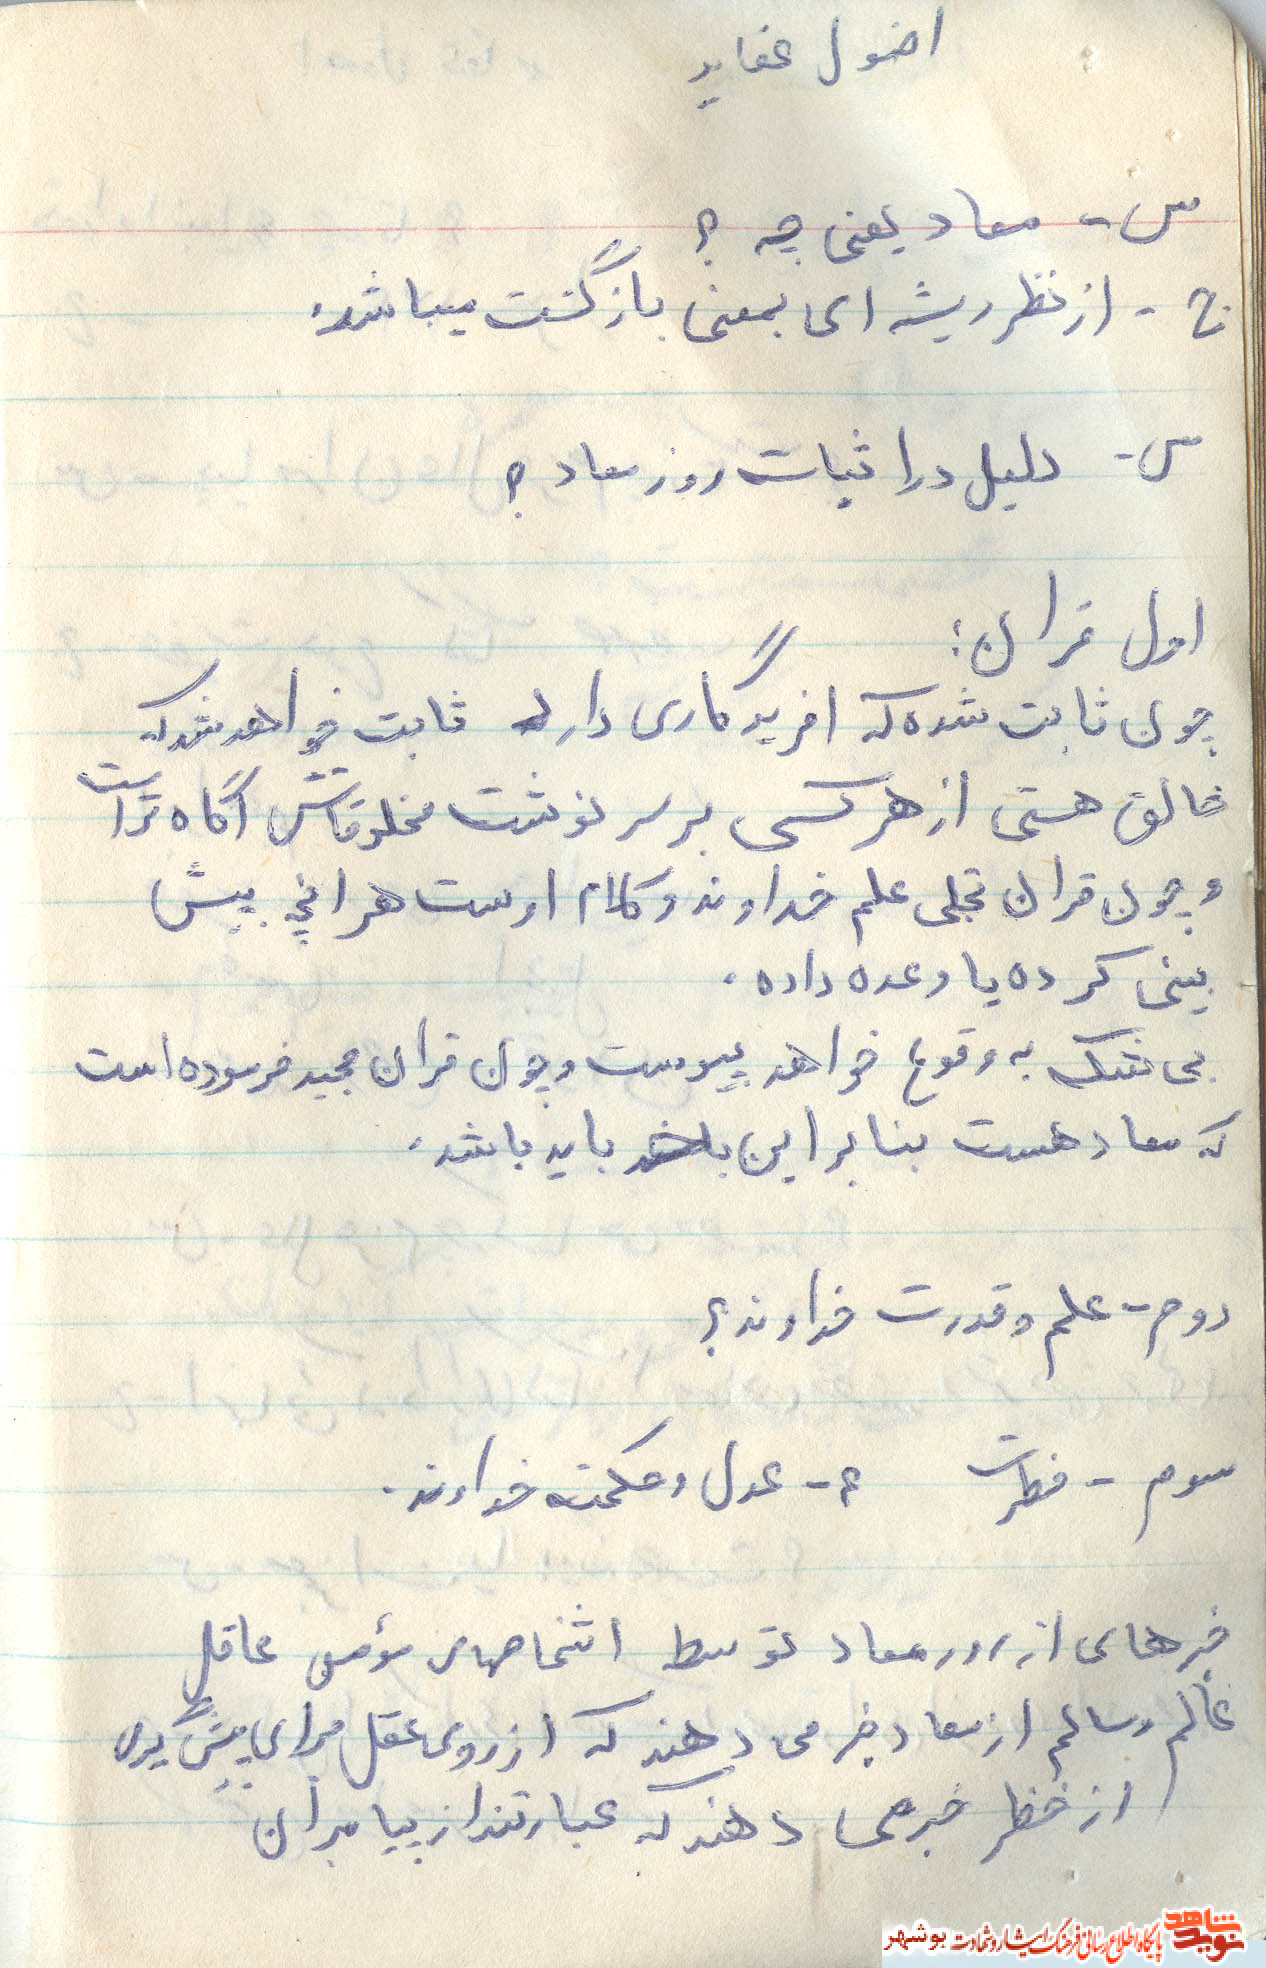 اضول عقاید
س - معاد یعنی چه ؟
ج - از نظر ریشه ای بمعنی بازگشت میباشد.
س - دلیل در اثبات روز معاد ؟
اول قران :
چون ثابت شده که افریدگاری دارد ثابت خواهد شد که
خالق هستی از هر کسی بر سر نوشت مخلوقاتش آگاه تر است
و چون قران تجلی علم خداوند و کلام اوست هر انچه پیش
بینی کرده یا وعده داده .
بی شک به وقوع خواهد پیوست و چون قران مجید فرموده است
که معاد هست بنابر این باید باشد .
دوم - علم و قدرت خداوند ؟
سوم - فطرت ۴ - عدل و حکمت خداوند .
خبرهای از روز معاد توسط اشخاصهای مؤمن عاقل
عالم و سالم از معاد خبر می دهند که از روی عقل برای پیش گیری
از خطر خبر می دهند که عبارتند از پیامبران
نوید شاهد
پایگاه اطلاع رسانی فرهنگ ایثار و شهادت بوشهر